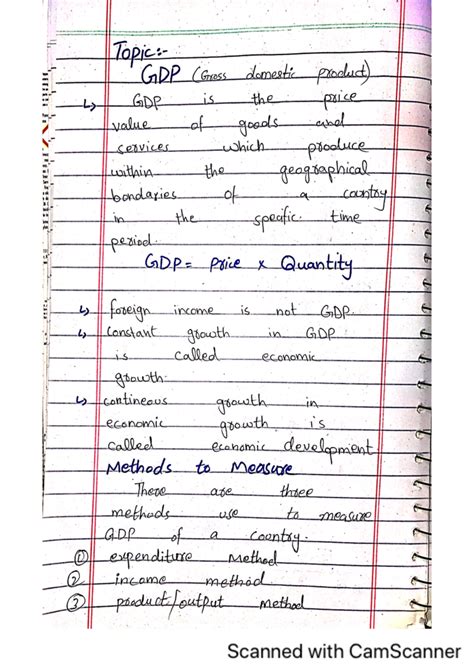 Topic:-
GDP (Gross domestic product)
↳ GDP is the price
value of goods and
services which produce
within the geographical
bondaries of a country
in the specific time
period.
GDP = Price x Quantity
↳ foreign income is not GDP.
↳ constant growth in GDP
is called economic
growth.
↳ contineous growth in
economic growth is
called economic development
Methods to Measure
There are three
methods use to measure
GDP of a country.
① expenditure Method
② income method.
③ product/output method
Scanned with CamScanner